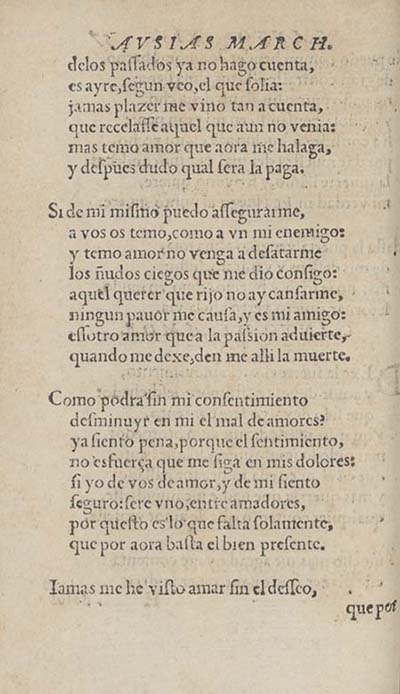 AVSIAS MARCH.
delos passados ya no hago cuenta,
es ayre, segun veo, el que solia:
jamas plazer me vino tan a cuenta,
que recelasse aquel que aun no venia:
mas temo amor que aora me halaga,
y despues dudo qual sera la paga.
Si de mi mismo puedo assegurarme,
a vos os temo, como a vn mi enemigo:
y temo amor no venga a desatarme
los ñudos ciegos que me dio consigo:
aquel querer que rijo no ay cansarme,
ningun pauor me causa, y es mi amigo:
essotro amor que a la passion aduierte,
quando me dexe, den me alli la muerte.
Como podra sin mi consentimiento
desminuyr en mi el mal de amores?
ya siento pena, porque el sentimiento,
no esfuerça que me siga en mis dolores:
si yo de vos de amor, y de mi siento
seguro: sere vno, entre amadores,
por questo es lo que falta solamente,
que por aora basta el bien presente.
Iamas me he visto amar sin el desseo,
que por